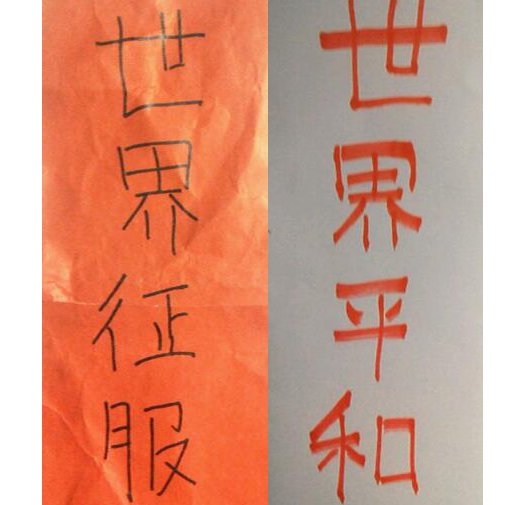 世界征服
世界平和